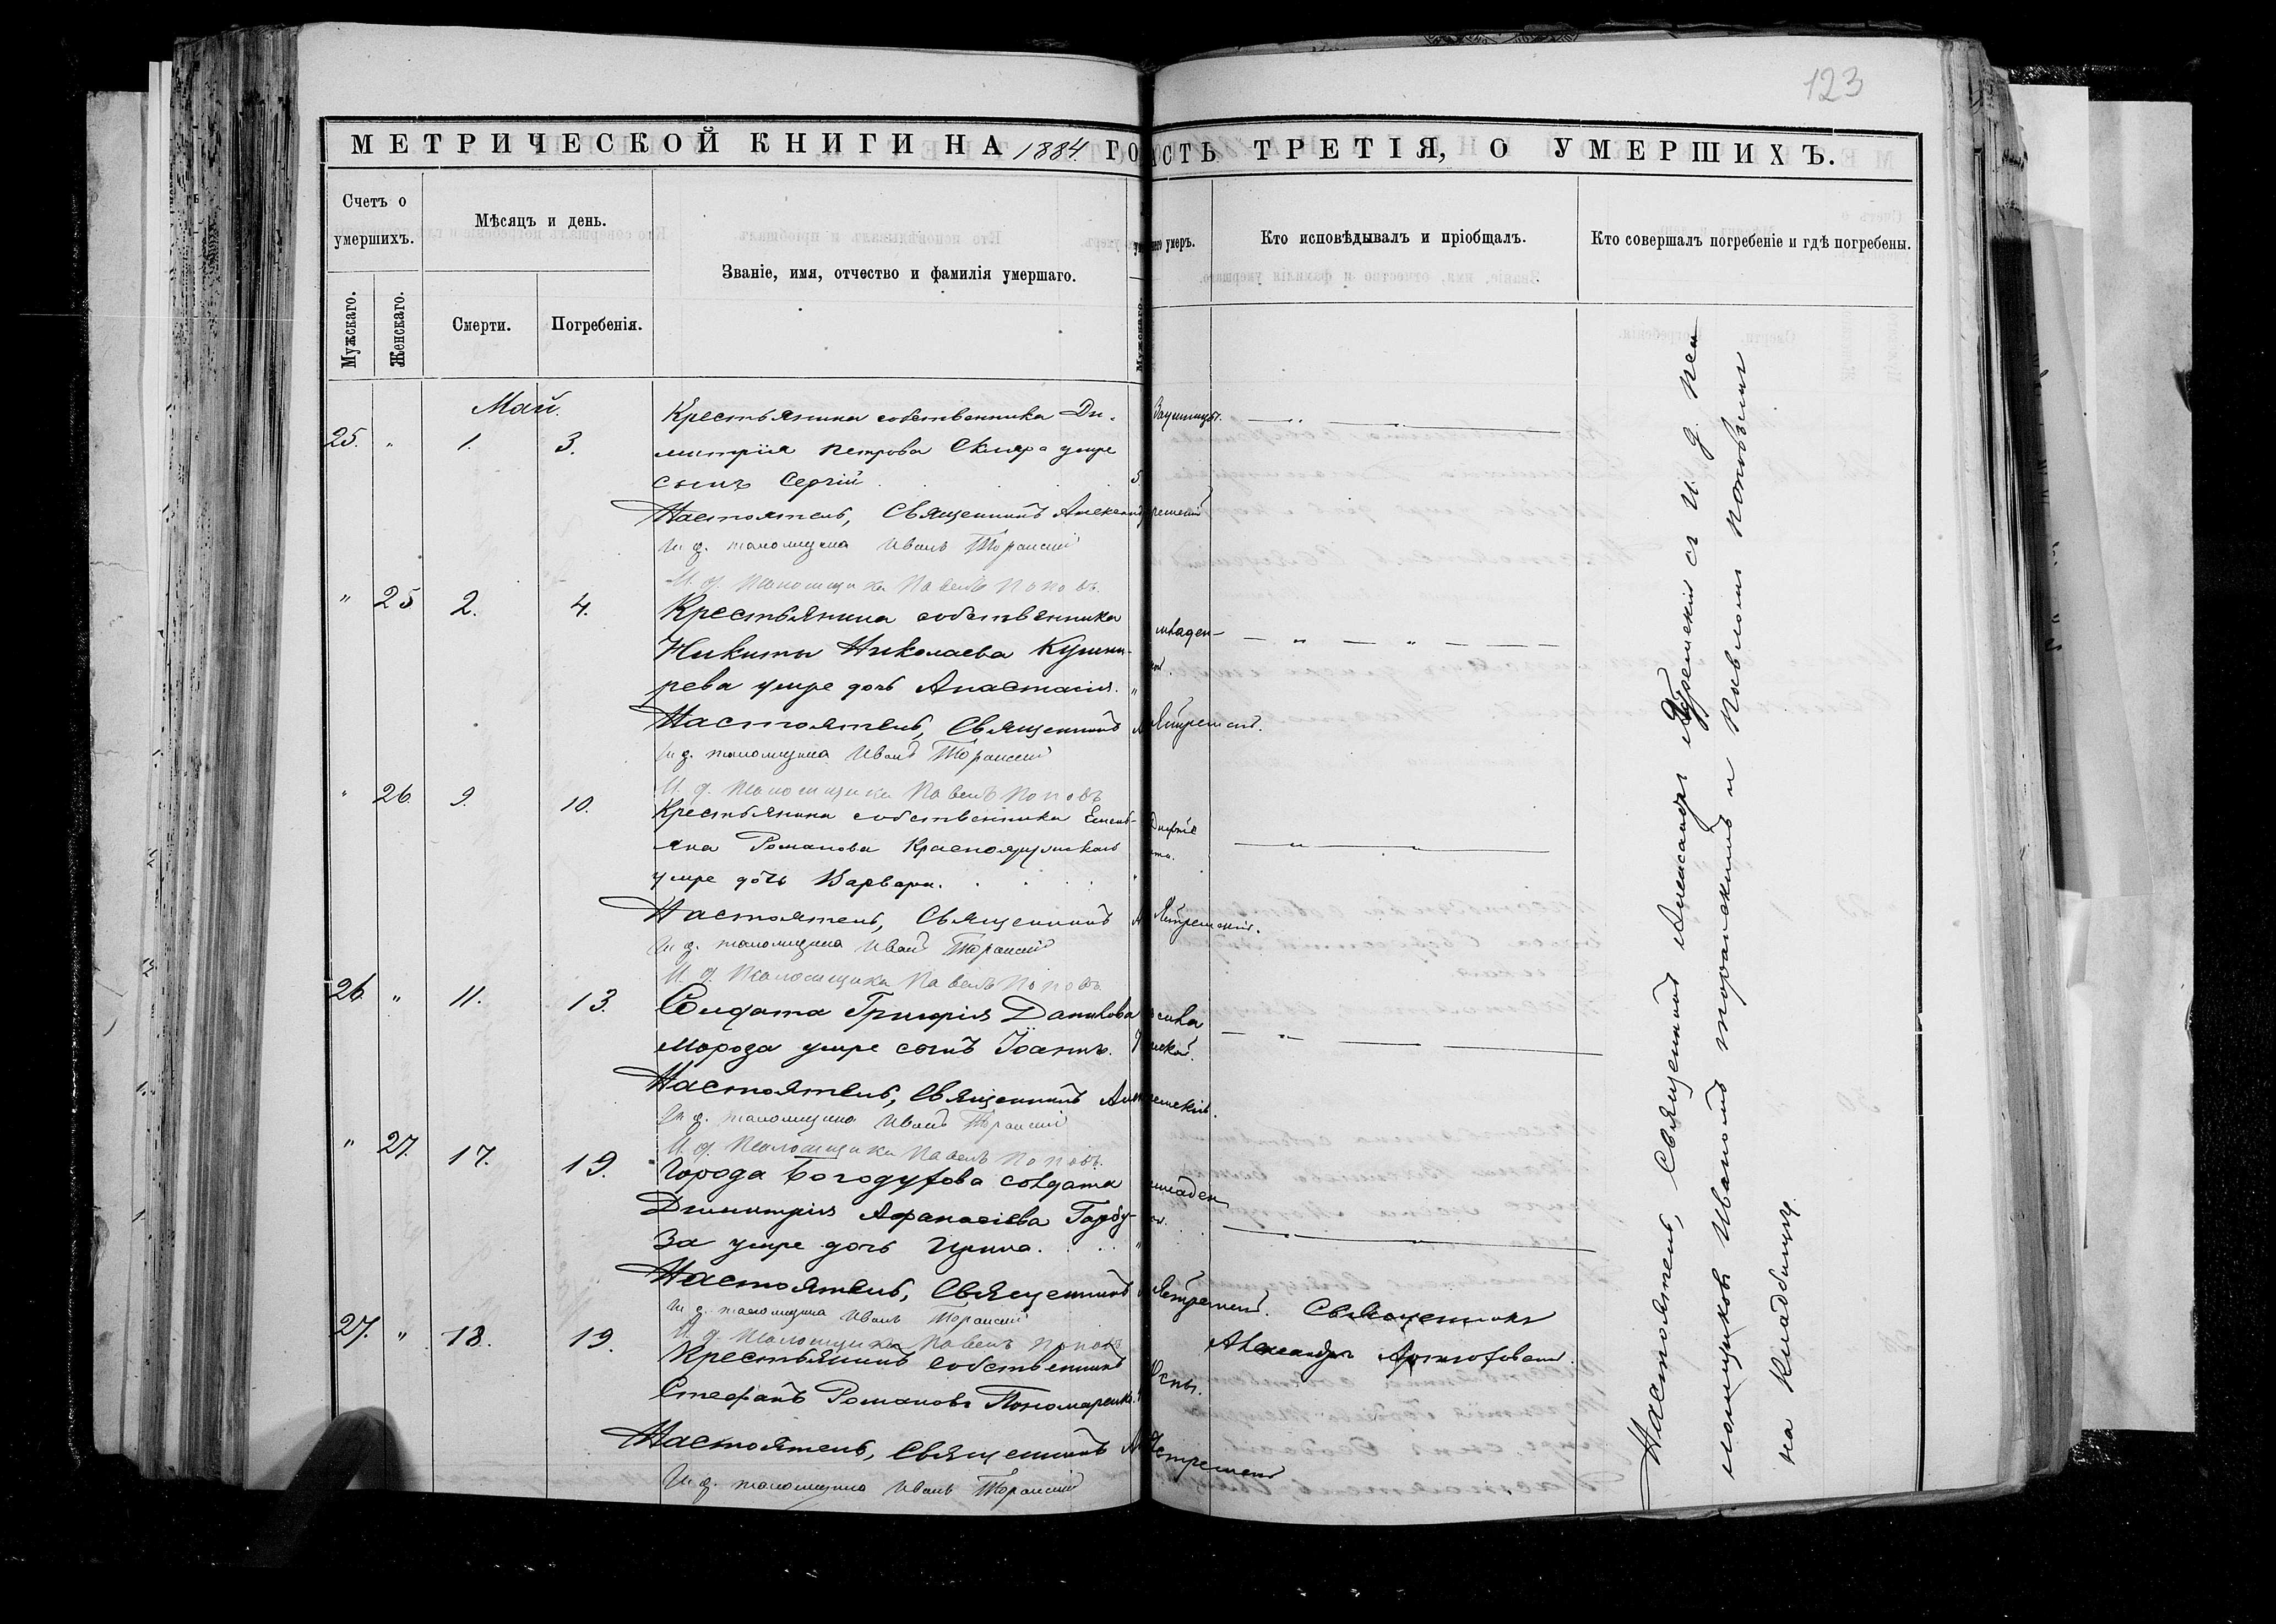 123
МЕТРИЧЕСКОЙ КНИГИ НА 1884 ГО
АСТЬ ТРЕТІЯ, О УМЕРШИХЪ.
Счетъ о умершихъ.
Мѣсяцъ и день.
Званіе, имя, отчество и фамилія умершаго.
его умеръ.
Кто исповѣдывалъ и пріобщалъ.
Кто совершалъ погребеніе и гдѣ погребены.
Мужскаго.
Женскаго.
Смерти.
Погребенія.
Мужскаго.
Май.
25. " 1. 3.
Крестьянина собственника Ди-
митрія Петрова Скляра умре
сынъ Сергій 5.
Заушницы.
Настоятель, Священникъ
И. д. псаломщика Иванъ Торанскій
И. д. Псаломщика Павелъ Поповъ.
" 25 2. 4.
Крестьянина собственника
Никиты Николаева
рева умре дочь Анастасія. "
младен-
Настоятель, Священникъ
И. д. псаломщика Иванъ Торанскій
И. д. Псаломщика Павелъ Поповъ
" 26. 9. 10.
Крестьянина собственника Емель-
яна Романова
умре дочь Варвара.
Настоятель, Священникъ
И. д. псаломщика Иванъ Торанскій
И. д. Псаломщика Павелъ Поповъ
26. " 11. 13.
Солдата Григорія Данилова
Мороза умре сынъ Іоаннъ.
Настоятель, Священникъ
И. д. псаломщика Иванъ Торанскій
И. д. Псаломщика Павелъ Поповъ.
" 27. 17. 19.
Города Богодухова солдата
Димитрія Афанасіева Гарбу-
за умре дочь Ирина.
младен
Настоятель, Священникъ
И. д. псаломщика Иванъ Торанскій
И. д. Псаломщика Павелъ Поповъ
27. " 18. 19.
Крестьянинъ собственникъ
Стефанъ Романовъ Пономаренко.
Оспы.
Священникъ
Александръ
Настоятель, Священникъ
И. д. псаломщика Иванъ Торанскій
Настоятель, Священникъ Александръ съ И. д. пса
ломщиковъ Иваномъ Торанскимъ и Павломъ Поповымъ
на кладбищѣ.